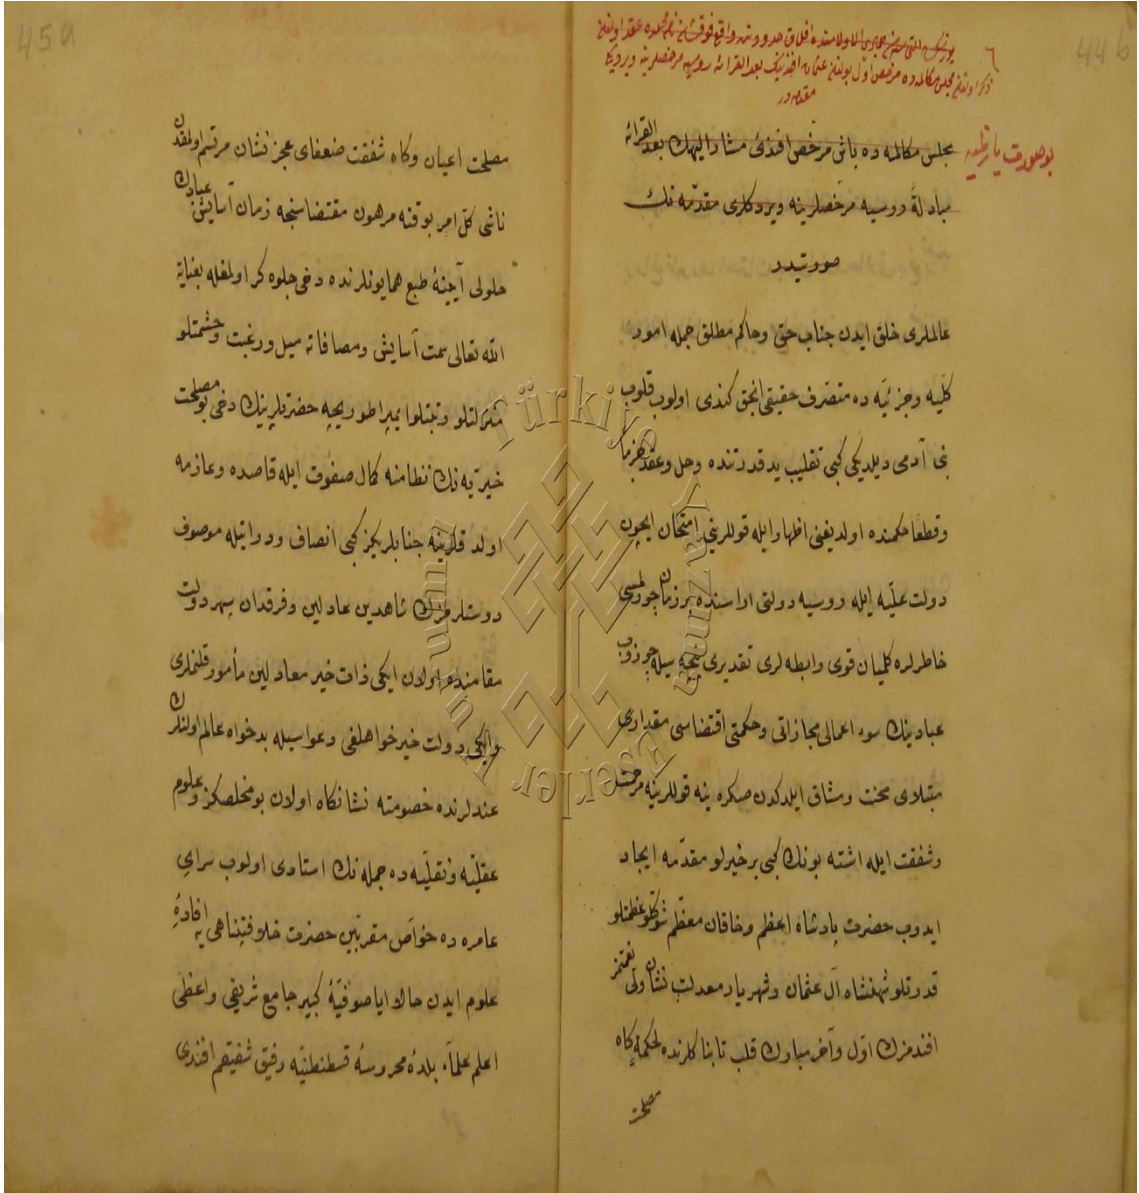 44b
٦
بوصورت یازیله
مجلس مکالمه ده باش مرخص افندی مشار الیهك بعد القرائه
مبادلةً روسیه مرخصلرینه ویردکلری مقدّمه نك
صورتیدر
عالملری خلق ایدن جناب حق وحاکم مطلق جمله امور
کلّیه وجزئیّه ده متصرّف حقیقی انجق کندی اولوب قلوب
بنی آدمی دیلدیکی کبی تقلیب ید قدرتنده وحل وعقد
وقطعا حکمنده اولدیغنی اظهار ایله قوللرینی امتحان ایچون
دولت علیّه ایله روسیه دولتی اراسنده برزمان
خاطرلره کلمیان قوی رابطه لری تقدیری
عبادینك سوء اعمالی مجازاتی وحکمتی اقتضاسی مقداری
مبتلای محنت ومشاق ایلدکدن صکره ینه قوللرینه مرحمت
وشفقت ایله اشته بونك کبی بر خیرلو مقدّمه ایجاد
ایدوب حضرت پادشاه اعظم وخاقان معظّم شوکتلو عظمتلو
قدرتلو شهنشاه آل عثمان وشهریار معدلت نشان ولی نعمتمز
افندمزك اوّل وآخر مبارك قلب تابناکلرنده لحکمةٍ کاه
مصلحت
45a
مصلحت اعیان وکاه شفقت ضعفای عجز نشان مرتسم اولمقدن
ناشی کلّ امر بوقته مرهون مقتضاسنجه زمان آسایش عبادك
حلولی آیینهٔ طبع همایونلرنده دخی جلوه کر اولمغله بعنایة
الله تعالی سمت آسایش ومصافاته میل ورغبت وحشمتلو
منزلتلو ورتبتلو ایمپراطوریچه حضرتلرینك دخی بو مصلحت
خیریّه نك نظامنه کمال صفوت ایله قاصده وعازمه
اولدقلرینه جنابلریکز کبی انصاف ودرایتله موصوف
دوستلرمزك شاهدین عادلین وفرقدان سپهر دولت
مقامنده اولان ایکی ذات خیر معادلین مأمور قلنملری
وایکی دولت خیرخواهلغی دعواسیله بدخواه عالم اولنلرك
عندلرنده خصومته نشانکاه اولان بو مخلصکز وعلوم
عقلیّه ونقلیّه ده جمله نك استادی اولوب سرای
عامره ده خواصّ مقرّبین حضرت خلافتپناهی یه افادهٔ
علوم ایدن حالا ایاصوفیّهٔ کبیر جامع شریفی واعظی
اعلم علماء بلدهٔ محروسهٔ قسطنطنیّه رفیق شفیقم افندی
Türkiye Yazma Eserler Kurumu